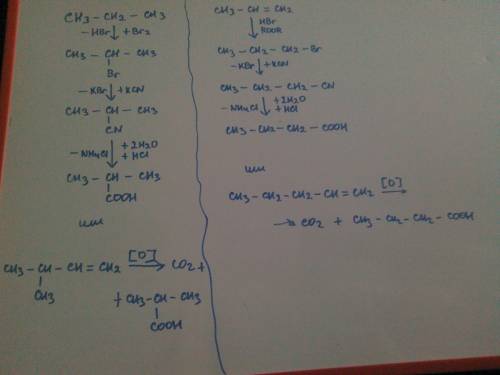 CH3 - CH2 - CH3
- HBr ↓ + Br2
CH3 - CH - CH3
|
Br
- KBr ↓ + KCN
CH3 - CH - CH3
|
CN
- NH4Cl ↓ + 2H2O
+ HCl
CH3 - CH - CH3
|
COOH
или
CH3 - CH - CH = CH2 [O] → CO2 +
|
CH3
+ CH3 - CH - CH3
|
COOH
CH3 - CH = CH2
↓ HBr
ROOR
CH3 - CH2 - CH2 - Br
- KBr ↓ + KCN
CH3 - CH2 - CH2 - CN
- NH4Cl ↓ + 2H2O
+ HCl
CH3 - CH2 - CH2 - COOH
или
CH3 - CH2 - CH2 - CH = CH2 [O] →
→ CO2 + CH3 - CH2 - CH2 - COOH